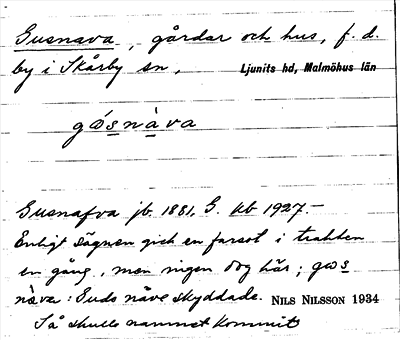 Gusnava, gårdar och hus, f. d.
by i Skårby sn, Ljunits hd, Malmöhus län
gώsnàva
Gusnafva jb. 1881, G. kb 1927.—
Enligt sägnen gick en farsot i trakten
en gång, men ingen dog här; gωs
näva: Guds näve skyddade. NILS NILSSON 1934
Så skulle namnet kommit